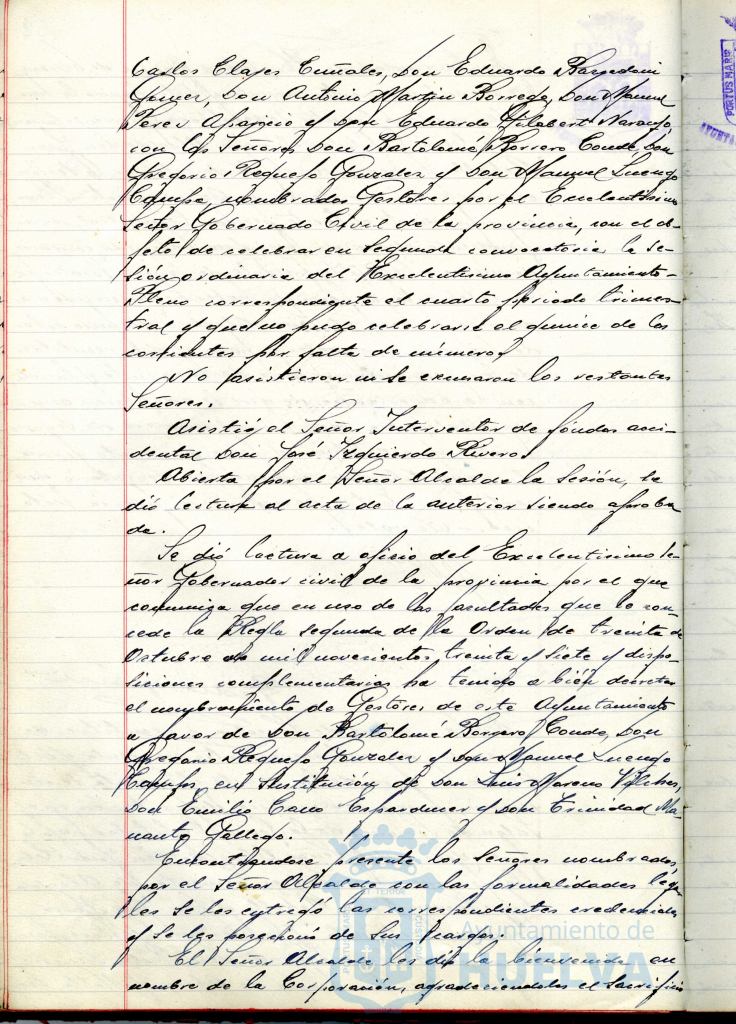 Carlos Clajes Cuñales, Don Eduardo Bargedoni
Gomez, Don Antonio Martin Borrego, Don Manuel
Perez Aparicio y Don Eduardo Gilabert Naranjo,
con los Señores Don Bartolomé Borrero Conde, Don
Gregorio Requejo Gonzalez y Don Manuel Luengo
Campos, nombrados Gestores por el Excelentísimo
Señor Gobernado Civil de la provincia, con el ob-
jeto de celebrar en segunda convocatoria la se-
sión ordinaria del Excelentísimo Ayuntamiento-
Pleno correspondiente al cuarto período trimes-
tral y que no pudo celebrarse el quince de los
corrientes por falta de número.
No asistieron ni se excusaron los restantes
Señores.
Asistió el Señor Interventor de fondos acci-
dental Don José Izquierdo Rivero.
Abierta por el Señor Alcalde la Sesión, se
dió lectura al acta de la anterior siendo aproba-
da.
Se dió lectura a oficio del Excelentísimo Se-
ñor Gobernador civil de la provincia por el que
comuniga que en uso de las facultades que le con-
cede la Regla segunda de la Orden de treinta de
Octubre de mil novecientos treinta y siete y dispo-
siciones complementarias ha tenido a bién decretar
el nombramiento de Gestores de este Ayuntamiento
a favor de Don Bartolomé Borrero Conde, Don
Gregorio Requejo Gonzalez y Don Manuel Luengo
Campos, en sustitución de Don Luis Moreno Vilches,
Don Emilio Cano y Don Trinidad Ma-
nuanto Gallego.
Encontrándose presente los Señores nombrados,
por el Señor Alcalde con las formalidades lega-
les se les entregó las correspondientes credenciales
y se les posesionó de sus cargos.
El Señor Alcalde les dió la bienvenida en
nombre de la Corporación, agradeciendoles el Sacrificio
Ayuntamiento de
HUELVA
PORTUS MARIS